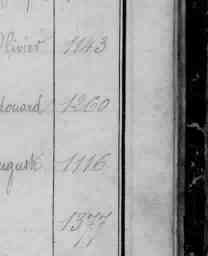 Olivier 1143
douard 1260
uguste 1116
1377
11